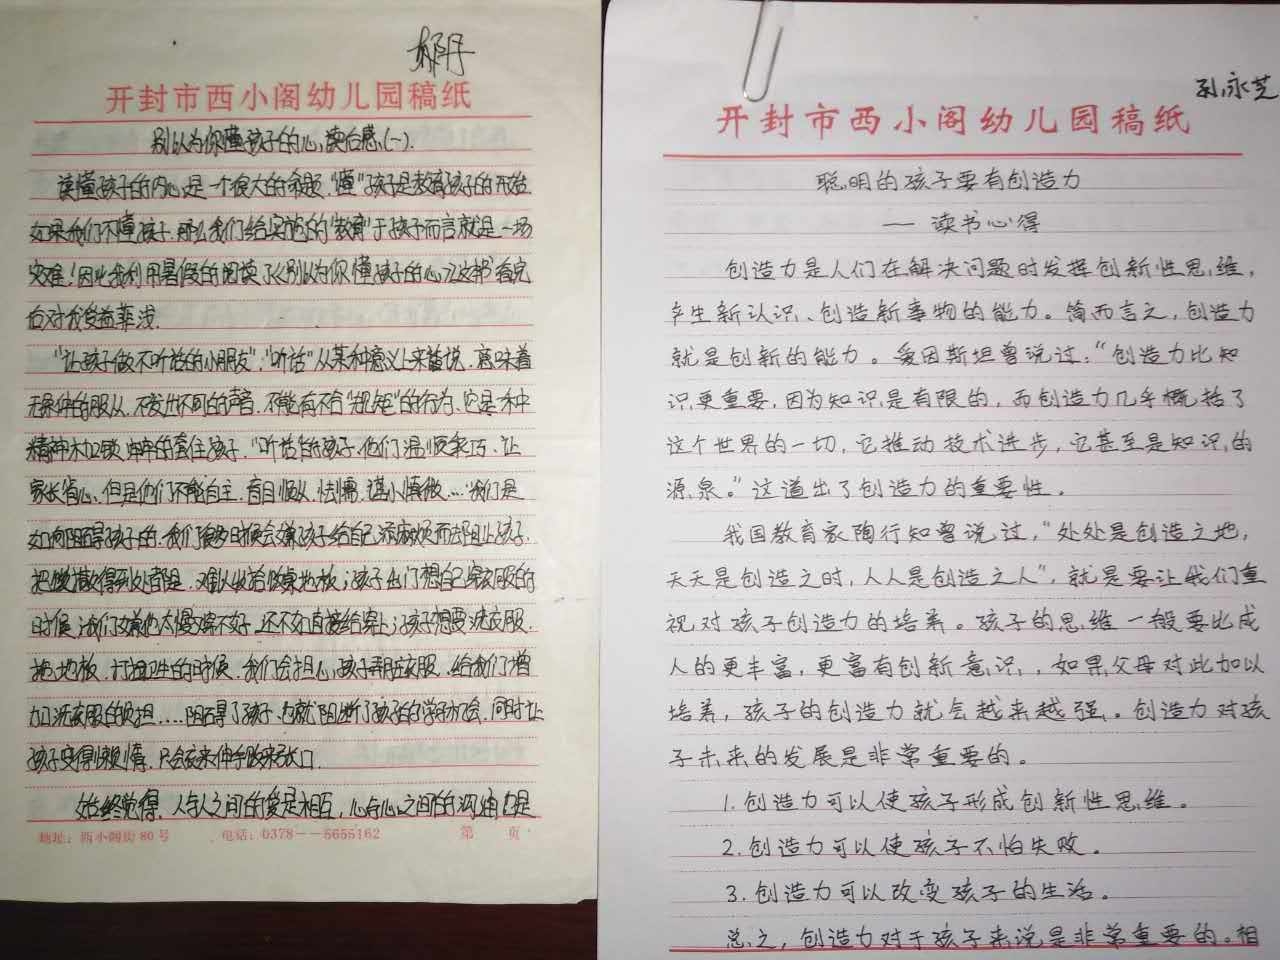 开封市西小阁幼儿园稿纸
别认为你懂孩子的心读后感(一).
读懂孩子的内心是一个很大的命题."懂"孩子是教育孩子的开始
如果我们不懂孩子.那么我们给实施的"教育"于孩子而言就是一场
灾难!因此我利用暑假的阅读了《别认为你懂孩子的心》这书看完
后对我受益菲浅.
"让孩子做不听话的小朋友"."听话"从某种意义上来普说.意味着
无条件的服从.不发出不同的声音.不能有不合"规矩"的行为.它是种
精神木加锁.牢牢的套住孩子."听话"的孩子.他们温顺乖巧.让
家长省心.但是他们不能自主.盲目恒从.怯懦.谨小慎微...."我们是
如何阻碍孩子的.我们很多时候会嫌孩子给自己添麻烦而却阻止孩子.
把饭撒得到处都是.难以收拾做桌地板;孩子出门想自己穿衣服的
时候.我们又嫌他太慢穿不好.还不如直接给穿上;孩子想要洗衣服.
拖地板.打扫卫生的时候.我们会担心孩子弄脏衣服.给我们增
加洗衣服的负担....阻碍了孩子.也就阻断了孩子的学习机会.同时让
孩子变得懒惰.只会衣来伸手饭来张口.
始终觉得.人与人之间的爱是相互.心与心之间的沟通也是
地址:西小阁街80号 电话:0378--5655162 第 页
孙永芝
开封市西小阁幼儿园稿纸
聪明的孩子要有创造力
——读书心得
创造力是人们在解决问题时发挥创新性思维,
产生新认识、创造新事物的能力。简而言之,创造力
就是创新的能力。爱因斯坦曾说过:"创造力比知
识更重要,因为知识是有限的,而创造力几乎概括了
这个世界的一切,它推动技术进步,它甚至是知识的
源泉。"这道出了创造力的重要性。
我国教育家陶行知曾说过,"处处是创造之地,
天天是创造之时,人人是创造之人",就是要让我们重
视对孩子创造力的培养。孩子的思维一般要比成
人的更丰富,更富有创新意识,,如果父母对此加以
培养,孩子的创造力就会越来越强。创造力对孩
子未来的发展是非常重要的。
1.创造力可以使孩子形成创新性思维。
2.创造力可以使孩子不怕失败。
3.创造力可以改变孩子的生活。
总之,创造力对于孩子来说是非常重要的。相